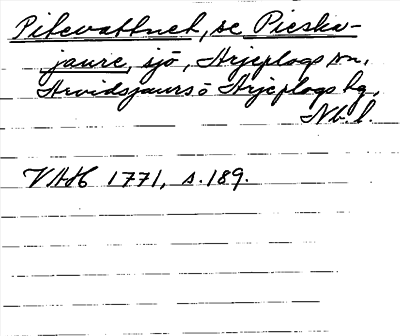 Pitevattnet, se Pieska-
jaure, sjö, Arjeplogs sn,
Arvidsjaurs o Arjeplogs lg,
Nb.l.
VAH 1771, s.189.